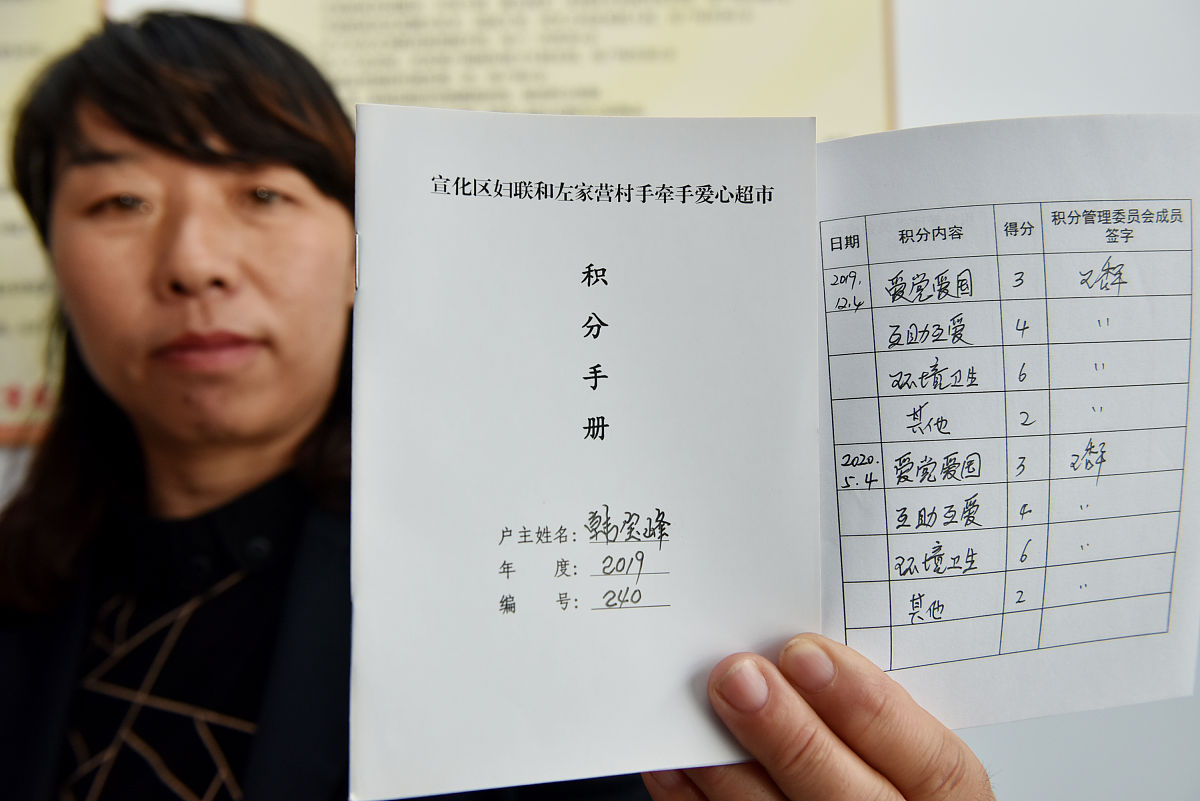 宣化区妇联和左家营村手牵手爱心超市
积
分
手
册
户主姓名：韩宝峰
年 度：2019
编 号：240
日期 积分内容 得分 积分管理委员会成员签字
2019.12.4 爱党爱国 3
互助互爱 4 〃
环境卫生 6 〃
其他 2 〃
2020.5.4 爱党爱国 3
互助互爱 4 〃
环境卫生 6 〃
其他 2 〃